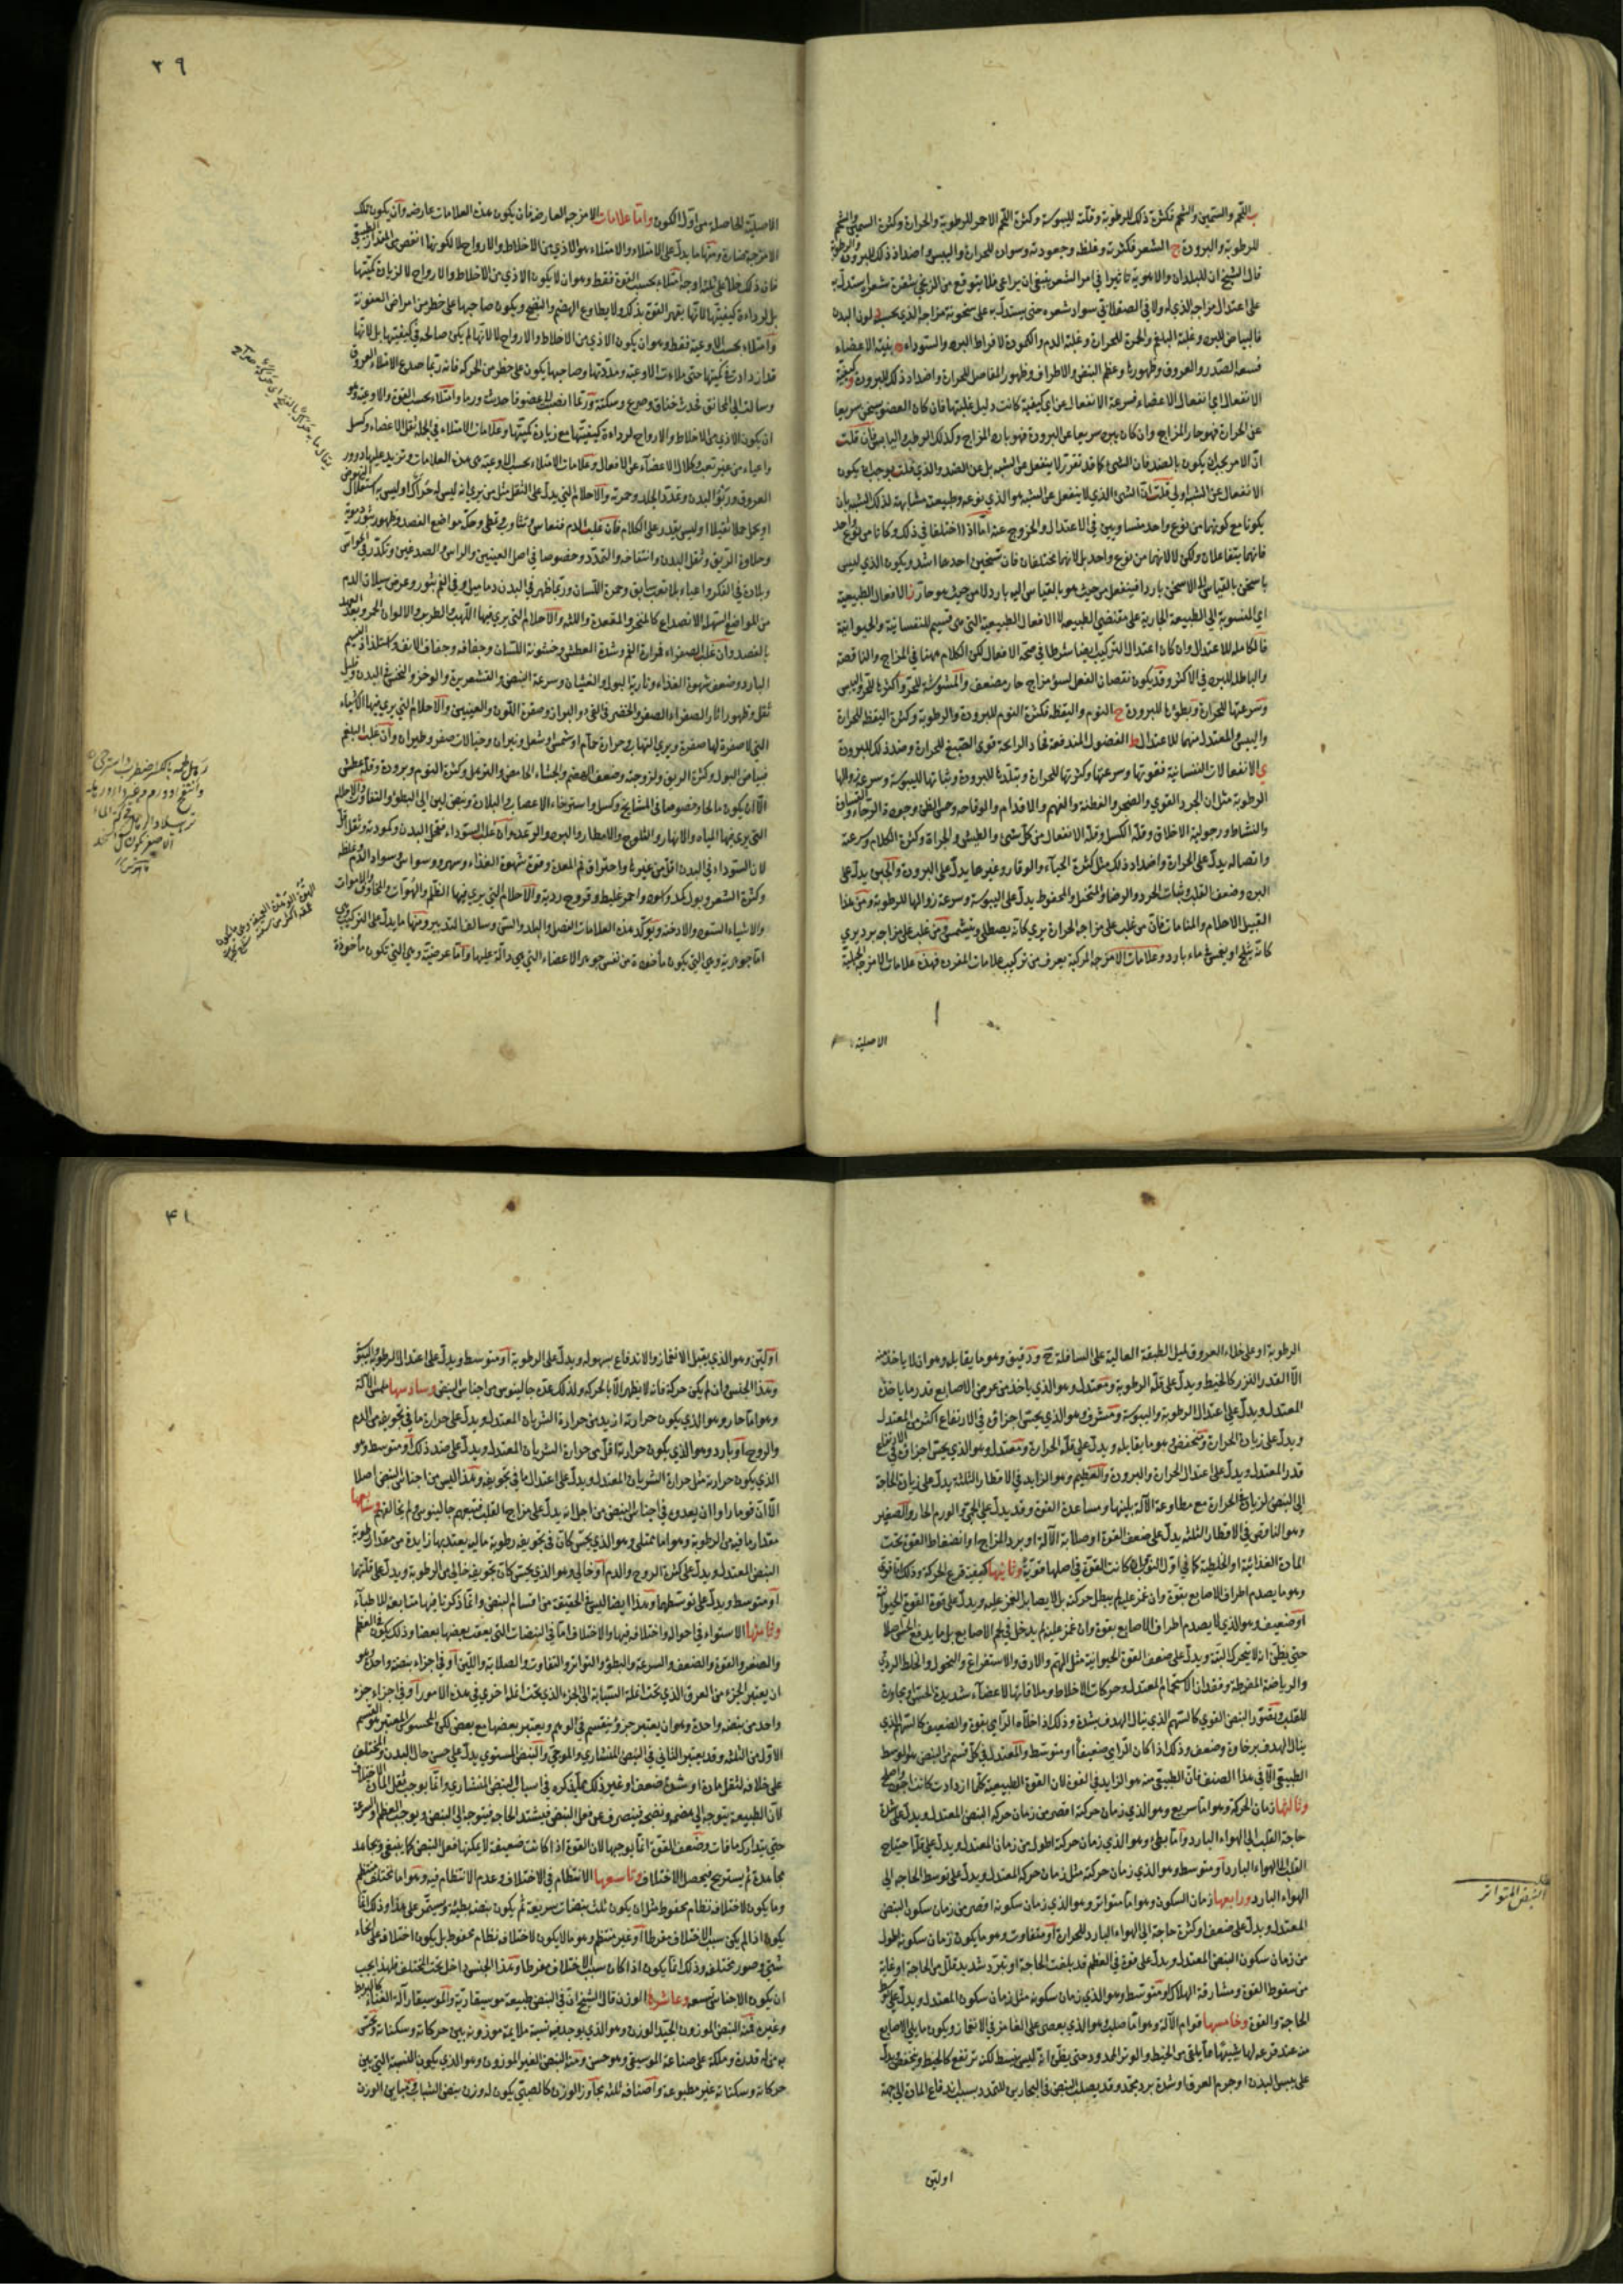 ب اللحم والسمين والشحم فكثرة ذلك للرطوبة وقلته لليبوسة وكثرة اللحم الاحمر للرطوبة والحرارة وكثرة السمين والشحم
للرطوبة والبرودة ج الشعر فكثرته وغلظه وجعودته وسواده للحرارة واليبس واضداد ذلك للبرودة والرطوبة
قال الشيخ ان للبلدان والاهوية تاثيرا في امر الشعر ينبغي ان يراعى فلا يتوقع من الزنجي شقرة شعر ليستدل به
على اعتدال مزاجه الذي له ولا في الصقلابي سواد شعره حتى يستدل به على سخونة مزاجه الذي يحسبه د لون البدن
فالبياض للبرد وغلبة البلغم والحمرة للحرارة وغلبة الدم والكمودة لافراط البرد والسوداء ه هيئة الاعضاء
فسعة الصدر والعروق وظهورها وعظم النبض والاطراف وظهور المفاصل للحرارة واضداد ذلك للبرودة و كيفية
الانفعال اي انفعال الاعضاء فسرعة الانفعال عن اي كيفية كانت دليل غلبتها فان كان العضو يسخن سريعا
عن الحرارة فهو حار المزاج وان كان يبرد سريعا عن البرودة فهو بارد المزاج وكذلك الرطب واليابس فان قلت
ان الامر يجب ان يكون بالضد فان الشيء كما قد تقرر لا ينفعل عن الشبه بل عن الضد والذي قلت يوجب ان يكون
الانفعال عن الشبه اولى قلت ان الشيء الذي لا ينفعل عن الشبه هو الذي نوعه وطبيعته مشابهة لذلك الشبه بان
يكونا مع كونهما من نوع واحد متساويين في الاعتدال والخروج عنه اما اذا اختلفا في ذلك وكانا من نوع واحد
فانهما يتفاعلان ولكن لا لانهما من نوع واحد بل لانهما مختلفان فان سخينين احدهما اشد ويكون الذي ليس
باسخن بالقياس الى الاسخن باردا فينفعل من حيث هو بالقياس اليه بارد لا من حيث هو حار ز الافعال الطبيعية
اي المنسوبة الى الطبيعة الجارية على مقتضى الطبيعة لا الافعال الطبيعية التي هي قسيم للنفسانية والحيوانية
فالكاملة للاعتدال وان كان اعتدال التركيب ايضا شرطا في صحة الافعال لكن الكلام ههنا في المزاج والناقصة
والباطلة للبرد في الاكثر وقد يكون نقصان الفعل لسوء مزاج حار مضعف والمشوشة للحر واكثرها للحر واليبس
وسرعتها للحرارة وبطؤها للبرودة ح النوم واليقظة فكثرة النوم للبرودة والرطوبة وكثرة اليقظة للحرارة
واليبس والمعتدل منهما للاعتدال ط الفضول المندفعة فحاد الرائحة قوي الصبغ للحرارة وضد ذلك للبرودة
ي الانفعالات النفسانية فقوتها وسرعتها وكثرتها للحرارة وتبلدها للبرودة وثباتها لليبوسة وسرعة زوالها
الرطوبة مثل ان الحرد القوي والضجر والفطنة والفهم والاقدام والوقاحة وحسن الظن وجودة الرجاء والقساوة
والنشاط ورجولية الاخلاق وقلة الكسل وقلة الانفعال من كل شيء والطيش والجرأة وكثرة الكلام وسرعته
واتصاله يدل على الحرارة واضداد ذلك مثل كثرة الحياء والوقار وغيرها يدل على البرودة والجبن يدل على
البرد وضعف القلب وثبات الحرد والرضا والمتخيل والمحفوظ يدل على اليبوسة وسرعة زوالها للرطوبة ومن هذا
القبيل الاحلام والمنامات فان من غلب على مزاجه الحرارة يرى كانه يصطلي ويتشمس ومن غلب على مزاجه برد يرى
كانه يثلج او يغمس في ماء بارد وعلامات الامزجة المركبة يعرف من تركيب علامات المفردة فهذه علامات الامزجة الجبلية
الاصلية
٣٩
الاصلية الحاصلة من اول الكون واما علامات الامزجة العارضة فان يكون هذه العلامات عارضة وان يكون تلك
الامزجة ضارة ومنها ما يدل على الامتلاء والامتلاء هو الاذى من الاخلاط والارواح لا لكونها انقص من المقدار الطبيعي
فان ذلك خلاء على ثلثة اوجه امتلاء بحسب القوة فقط وهو ان لا يكون الاذى من الاخلاط والارواح لا لزيادة كميتها
بل لرداءة كيفيتها لانها يقهر القوة بذلك ولا يطاوع الهضم والنضج ويكون صاحبها على خطر من امراض العفونة
وامتلاء بحسب الاوعية فقط وهو ان يكون الاذى من الاخلاط والارواح لا لانها لم يكن صالحة في كيفيتها بل لانها
قد ازدادت في كميتها حتى ملاءت الاوعية ومددتها وصاحبها يكون على خطر من الحركة فانه ربما صدع الامتلاء العروق
وسالت الى المخانق فحدث خناق وصرع وسكتة وربما انصب الى عضو فاحدث ورما وامتلاء بحسب القوة والاوعية وهو
ان يكون الاذى من الاخلاط والارواح لرداءة كيفيتها مع زيادة كميتها وعلامات الامتلاء في الجملة ثقل الاعضاء وكسل
واعياء من غير تعب وكلال الاعضاء عن الافعال وعلامات الامتلاء بحسب الاوعية هي هذه العلامات وتزيد عليها درور
العروق وربو البدن وتمدد الجلد وحمرته والاحلام التي يدل على الثقل مثل من يرى انه ليس له حراك او ليس به استقلال النهوض
او يحمل حملا ثقيلا او ليس يقدر على الكلام فان غلب الدم فنعاس وتثاوب وتمطي وحكة مواضع الفصد وظهور بثور دموية
وحلاوة الريق وثقل البدن وانتفاخه والتمدد وخصوصا في اصل العينين والراس والصدغين وتكدر في الحواس
وبلادة في الفكر واعياء بلا تعب سابق وحمرة اللسان وربما ظهر في البدن دماميل وفي الفم بثور وعرض سيلان الدم
من المواضع السهلة الانصداع كالمنخر والمقعدة واللثة والاحلام التي يرى فيها اللهب والطرب والالوان الحمر وبعد العهد
بالفصد وان غلب الصفراء فمرارة الفم وشدة العطش وخشونة اللسان وجفافه وجفاف الانف واستلذاذ النسيم
البارد وضعف شهوة الغذاء ونارية البول والغثيان وسرعة النبض والقشعريرة والوخز والنخس في البدن وقليل
ثقل وظهور اثار الصفراء الصفر والخضر في القيء والبراز وصفرة اللون والعينين والاحلام التي يرى فيها الاشياء
التي لا صفرة لها صفرة ويرى التهاب وحرارة حمام او شمس وشعل ونيران وخيالات صفر وطيران وان غلب البلغم
فبياض البول وكثرة الريق ولزوجته وضعف الهضم والجشاء الحامض والترهل وكثرة النوم وبرودة وقلة عطش
الا ان يكون مالحا وخصوصا في المشايخ وكسل واسترخاء الاعصاب والبلادة ونبض لين الى البطؤ والتفاوت والاحلام
التي يرى فيها المياه والانهار والثلوج والامطار والبرد والرعد وان غلب السوداء فقحل البدن وكمودته وثقل اقل
لان السوداء في البدن اقل من غيرها واحتراق فم المعدة وقوة شهوة الغذاء وسهر ووسواس وسواد الدم وغلظه
وكثرة الشعر وبول كمد واسود واحمر غليظ وقروح ردية والاحلام التي يرى فيها الظلم والهوات والمخاوف والاموات
والاشياء السود والادخنة ويؤكد هذه العلامات الفصل والبلد والسن وسالف التدبير ومنها ما يدل على التركيب وهي
اما جوهرية وهي التي يكون مأخوذة من نفس جوهر الاعضاء التي هي دالة عليها واما عرضية وهي التي تكون مأخوذة
الرطوبة او على خلاء العروق لميل الطبقة العالية على السافلة ح ودقيق وهو ما يقابله وهو ان لا ياخذ منه
الا القدر النزر كالخيط ويدل على قلة الرطوبة ومعتدل وهو الذي ياخذ من عرض الاصابع قدر ما ياخذه
المعتدل ويدل على اعتدال الرطوبة واليبوسة ومشرف وهو الذي يحس اجزاؤه في الارتفاع اكثر من المعتدل
ويدل على زيادة الحرارة ومنخفض وهو ما يقابله ويدل على قلة الحرارة ومعتدل وهو الذي يحس اجزاؤه في الارتفاع
قدر المعتدل ويدل على اعتدال الحرارة والبرودة والعظيم وهو الزايد في الاقطار الثلثة يدل على زيادة الحاجة
الى النبض لزيادة الحرارة مع مطاوعة الآلة بلينها ومساعدة القوة وقد يدل على الحمى والورم الحار والصغير
وهو الناقص في الاقطار الثلثة يدل على ضعف القوة او صلابة الآلة او برد المزاج او انضغاط القوة تحت
المادة الغذائية او الخلطية كما في اول النوبة وان كانت القوة في اصلها قوية وثانيها كيفية قرع الحركة وذلك اما قوي
وهو ما يصدم اطراف الاصابع بقوة وان غمز عليه لم يبطل حركته بل لا يصابر الغمز عليه ويدل على قوة القوة الحيوانية
او ضعيف وهو الذي لا يصدم اطراف الاصابع بقوة وان غمز عليه لم يدخل في لحم الاصابع بل ما يدفع الحس اصلا
حتى يظن انه لا يتحرك البتة ويدل على ضعف القوة الحيوانية مثل الهم والارق والاستفراغ والنحول والخلط الردي
والرياضة المفرطة وفقدان الاستحمام المعتدل وحركات الاخلاط وملاقاتها لاعضاء شديدة الحس ومجاورة
للقلب وتصور النبض القوي كالسهم الذي ينال الهدف بشدة وذلك اذا خلاه الرامي بقوة والضعيف كالسهم الذي
ينال الهدف برخاوة وضعف وذلك اذا كان الرامي ضعيفا او متوسط والمعتدل في كل قسم من النبض هو المتوسط
الطبيعي الا في هذا الصنف فان الطبيعي منه هو الزايد في القوة لان القوة الطبيعية كلما ازدادت كانت اجود واصلح
وثالثها زمان الحركة وهو اما سريع وهو الذي زمان حركته اقصر من زمان حركة النبض المعتدل ويدل على شدة
حاجة القلب الى الهواء البارد واما بطي وهو الذي زمان حركته اطول من زمان المعتدل ويدل على قلة احتياج
القلب الى الهواء البارد او متوسط وهو الذي زمان حركته مثل زمان حركة المعتدل ويدل على توسط الحاجة الى
الهواء البارد ورابعها زمان السكون وهو اما متواتر وهو الذي زمان سكونه اقصر من زمان سكون النبض
المعتدل ويدل على ضعف او كثرة حاجة الى الهواء البارد للحرارة او متفاوت وهو ما يكون زمان سكونه اطول
من زمان سكون النبض المعتدل ويدل على قوة في العظم قد بلغت الحاجة او تبرد شديد قلل من الحاجة او غاية
من سقوط القوة ومشارفة الهلاك او متوسط وهو الذي زمان سكونه مثل زمان سكون المعتدل ويدل على توسط
الحاجة والقوة وخامسها قوام الآلة وهو اما صلب وهو الذي يعصي على الغامز في الانغماز ويكون ما يلي الاصابع
منه عند قرعه لها شبيها بما يلقى من الخيط والوتر الممدود حتى يظن انه ليس ينبسط لكنه يرتفع كالخيط وينخفض ويدل
على يبس البدن او جرم العرق او شدة برد مجمد وقد يصلب النبض في البحارين للتمدد بسبب اندفاع المادة الى جهة
اولين
النبض المتواتر
٤١
او لين وهو الذي يقبل الانغماز والاندفاع بسهولة ويدل على الرطوبة او متوسط ويدل على اعتدال الرطوبة واليبوسة
وهذا الجنس وان لم يكن حركة فانه لا يظهر الا بالحركة ولذلك عده جالينوس من اجناس النبض وسادسها ملمس الآلة
وهو اما حار وهو الذي يكون حرارته ازيد من حرارة الشريان المعتدل ويدل على حرارة ما في تجويفه من الدم
والروح او بارد وهو الذي يكون حرارته اقل من حرارة الشريان المعتدل ويدل على ضد ذلك او متوسط وهو
الذي يكون حرارته مثل حرارة الشريان المعتدل ويدل على اعتدال ما في تجويفه وهذا ليس من اجناس النبض اصلا
الا ان قوما راوا ان يعدوه في اجناس النبض من اجل انه يدل على مزاج القلب فتبعهم جالينوس ولم يخالفهم وسابعها
مقدار ما فيه من الرطوبة وهو اما ممتلي وهو الذي يحس كان في تجويفه رطوبة مالية يعتد بها زايدة من مقدار رطوبة
النبض المعتدل ويدل على كثرة الروح والدم او خالي وهو الذي يحس كان تجويفه خالي من الرطوبة ويدل على قلتهما
او متوسط ويدل على توسطهما وهذا ايضا ليس في الحقيقة من اقسام النبض وانما ذكرناه فيها متابعة للاطباء
وثامنها الاستواء في احواله واختلافه فيها والاختلاف اما في النبضات التي يعقب بعضها بعضا وذلك يكون في العظم
والصغر والقوة والضعف والسرعة والبطؤ والتواتر والتفاوت والصلابة واللين او في اجزاء نبضة واحدة وهو
ان يعتبر الجزء من العرق الذي تحت انملة السبابة الى الجزء الذي تحت انملة اخرى في هذه الامور او في اجزاء جزء
واحد من نبضة واحدة وهو ان يعتبر جزؤ ينقسم في الوهم ويعتبر بعضها مع بعض لكن المحسوس المعتبر هو القسم
الاول من الثلثة وقد يعتبر الثاني في النبض المنشاري والموجي والنبض المستوي يدل على حسن حال البدن والمختلف
على خلافه لثقل مادة او شيء ضعف او غير ذلك مما يذكره في اسباب النبض المنشاري وانما يوجب ثقل المادة الاختلاف
لان الطبيعة يتوجه الى هضمه ونضجه فينصرف عن فعل النبض فيشتد الحاجة فيتوجه الى النبض ويوجب العظم والسرعة
حتى يتدارك ما فات وضعف القوة انما يوجبها لان القوة اذا كانت ضعيفة لا يمكنها فعل النبض كما ينبغي ويجاهد
مجاهدة ثم يستريح فيحصل الاختلاف وتاسعها الانتظام في الاختلاف وعدم الانتظام فيه وهو اما مختلف منتظم
وما يكون لاختلافه نظام محفوظ مثل ان يكون ثلث نبضات سريعة ثم يكون نبضة بطيئة ويستمر على هذا وذلك انما
يكون اذا لم يكن سبب الاختلاف مفرطا او غير منتظم وهو ما لا يكون لاختلافه نظام محفوظ بل يكون اختلافه على انحاء
شتى وصور مختلفة وذلك انما يكون اذا كان سبب الاختلاف مفرطا وهذا الجنس داخل تحت المختلف فلهذا يجب
ان يكون الاجناس تسعة وعاشرها الوزن قال الشيخ ان في النبض طبيعة موسيقارية والموسيقار آلة الغناء كالبربط
وغيره فمنه النبض الموزون الجيد الوزن وهو الذي يوجد فيه نسبة ملايمة موزونة بين حركاته وسكناته ويحس
به من له قدرة وملكة على صناعة الموسيقى وهو حسن ومنه النبض الغير الموزون وهو الذي يكون للنسبة التي بين
حركاته وسكناته غير مطبوعة واصنافه ثلثة مجاوز الوزن كالصبي يكون له وزن نبض الشباب ومباين الوزن